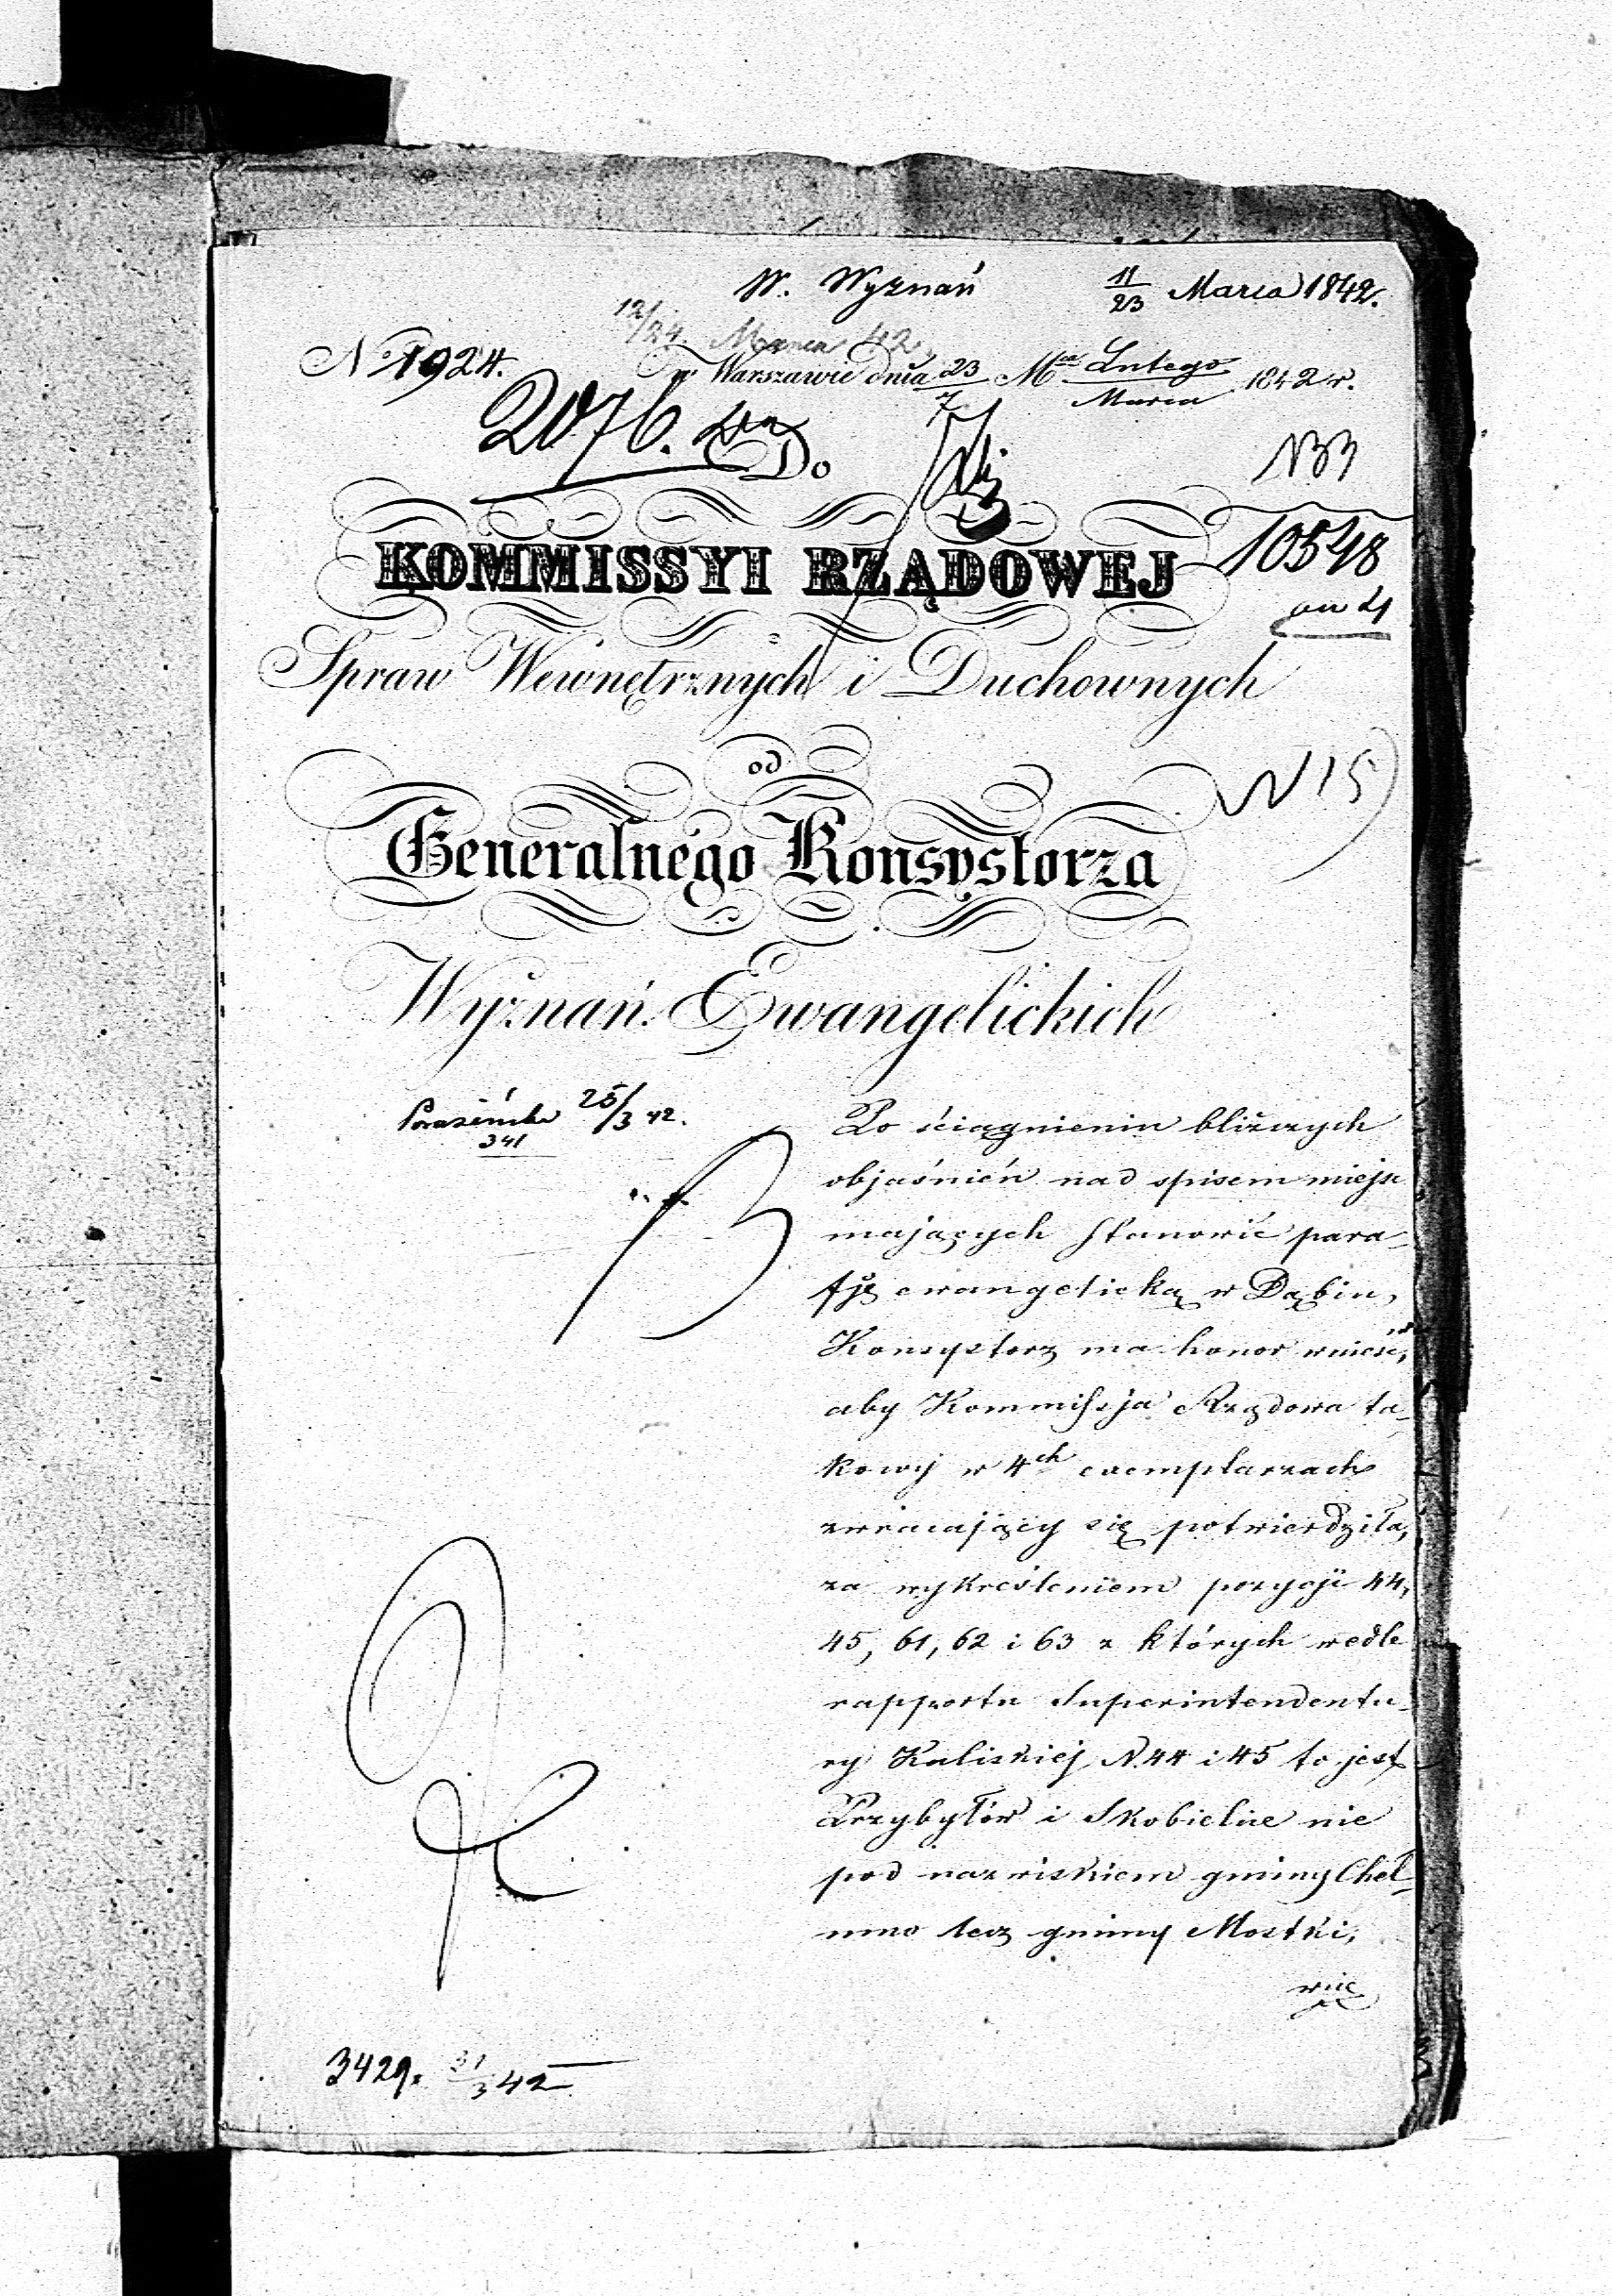 W. Wyznań 11/23 Marca 1842.
12/24 Marca 42
No 1924. w Warszawie dnia 23/7 Mca Lutego/Marca 1842 r.
2076.
Do
N33
KOMMISSYI RZĄDOWEJ
10548
Spraw Wewnętrznych i Duchownych
od
N 15
Generalnego Konsystorza
Wyznań Ewangelickich
25/3 42.
341
Po ściągnieniu bliższych
objaśnień nad spisem miejsc
mających stanowić para-
fję ewangelicką w Dąbiu,
Konsystorz ma honor wnieść,
aby Kommissja Rządowa ta-
kowy w 4ch exemplarzach
zwracający się potwierdziła,
za wykreśleniem pozycji 44,
45, 61, 62 i 63 z których wedle
rapportu Superintendentu-
ry Kaliskiej N. 44 i 45 to jest
Przybyłów i Skobielice nie
pod nazwiskiem gminy Cheł-
mno lecz gminy Mostki,
więc
3429. 31/3 42